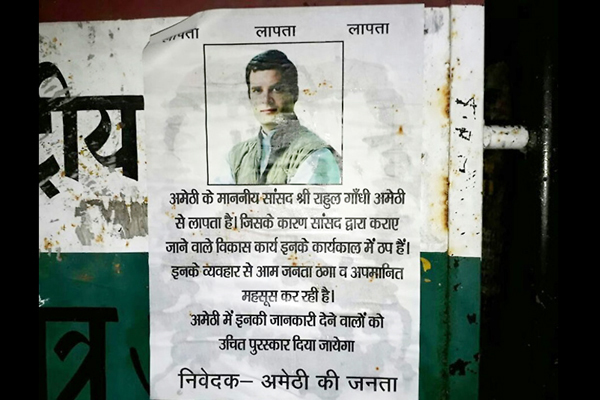 लापता लापता लापता
अमेठी के माननीय सांसद श्री राहुल गाँधी अमेठी
से लापता है। जिसके कारण सांसद द्वारा कराए
जाने वाले विकास कार्य इनके कार्यकाल में ठप हैं।
इनके व्यवहार से आम जनता ठगा व अपमानित
महसूस कर रही है।
अमेठी में इनकी जानकारी देने वालों को
उचित पुरस्कार दिया जायेगा
निवेदक– अमेठी की जनता